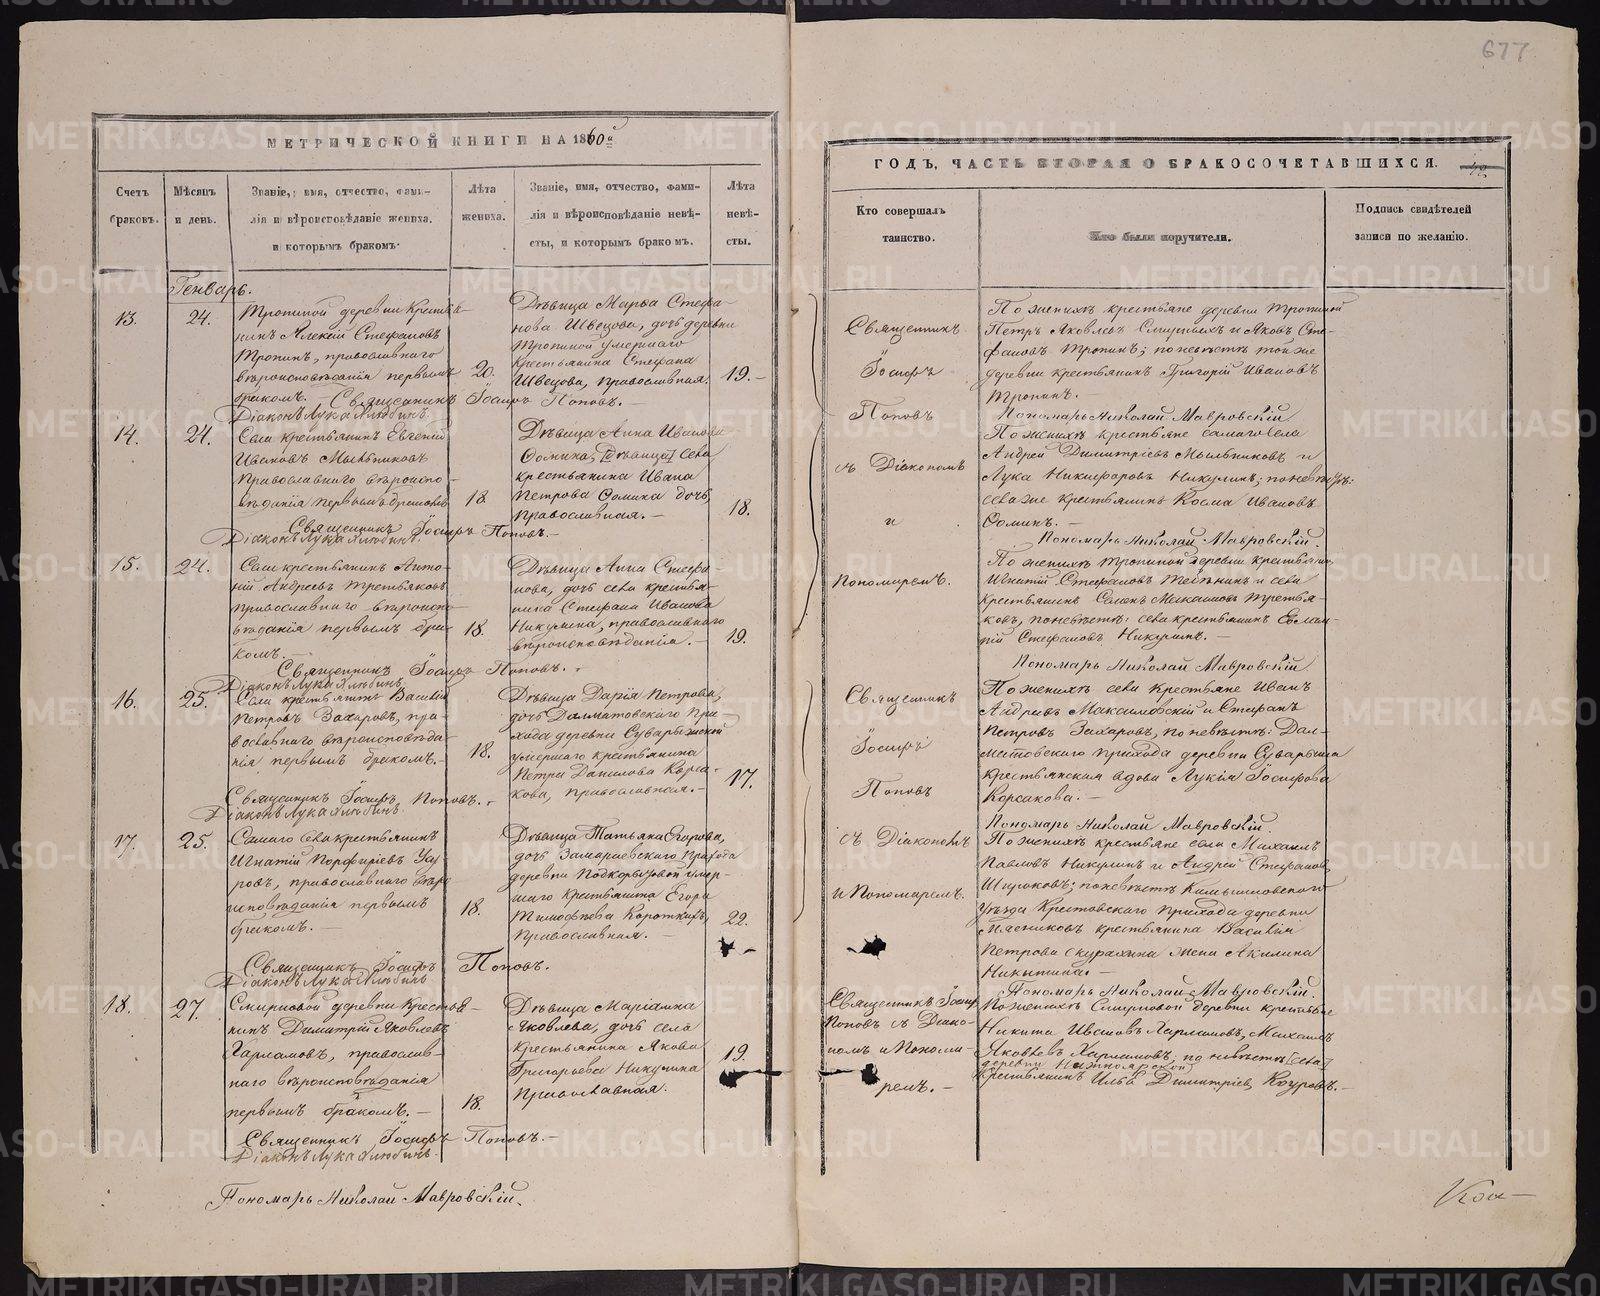 677
МЕТРИЧЕСКОЙ КНИГИ НА 1860й
Счетъ браковъ.
Мѣсяцъ и день.
Званіе, имя, отчество, фами-
лія и вѣроисповѣданіе жениха,
и которымъ бракомъ.
Лѣта жениха.
Званіе, имя, отчество, фами-
лія и вѣроисповѣданіе невѣ-
сты, и которымъ бракомъ.
Лѣта невѣ-
сты.
Генварь.
13.
24.
Тропиной деревни Крестья-
нинъ Алексій Стефановъ
Тропинъ, православнаго
вѣроисповѣданія первымъ
бракомъ.
20.
Дѣвица Марѳа Стефа-
нова Швецова, дочь деревни
Тропиной умершаго
крестьянина Стефана
Швецова, православная.
19.-
Священникъ Іосифъ Поповъ.-
Діаконъ Лука Хлюбинъ.
14.
24.
Села крестьянинъ Евгеній
Ивановъ Мыльниковъ
Православнаго вѣроиспо-
вѣданія первымъ бракомъ
18.
Дѣвица Анна Иванова
Сомина, [Дѣвица] села
крестьянина Ивана
Петрова Сомина дочь,
православная.-
18.
Священникъ Іосифъ Поповъ.-
Діаконъ Лука Хлюбинъ.
15.
24.
Села крестьянинъ Анто-
ній Андреевъ Третьяковъ
православнаго вѣроиспо-
вѣданія первымъ бра-
комъ.-
18.
Дѣвица Анна Стефа-
нова, дочь села крестья-
нина Стефана Иванова
Никулина, православнаго
вѣроисповѣданія.-
19.
Священникъ Іосифъ Поповъ.-
Діаконъ Лука Хлюбинъ.
16.
25.
Села крестьянинъ Василій
Петровъ Захаровъ, пра-
вославнаго вѣроисповѣда-
нія первымъ бракомъ.-
18.
Дѣвица Дарія Петрова,
дочь Далматовскаго При-
хода деревни Суварышской
умершаго крестьянина
Петра Данилова Корса-
кова, православная.-
17.
Священникъ Іосифъ Поповъ.-
Діаконъ Лука Хлюбинъ.
17.
25.
Самаго села крестьянинъ
Игнатій Порфирьевъ
ровъ, православнаго вѣро
исповѣданія первымъ
бракомъ.-
18.
Дѣвица Татьяна Егорова,
дочь Замараевскаго Прихода
деревни Подкорытовой умер-
шаго крестьянина Егора
Тимофѣева Короткихъ,
Православная.-
22.
Священникъ Іосифъ Поповъ.
Діаконъ Лука Хлюбинъ
18.
27.
Смирновой деревни Крестья-
нинъ Димитрій Яковлевъ
Харламовъ, православ-
наго вѣроисповѣданія
первымъ бракомъ.-
18.
Дѣвица Маріанна
Яковлева, дочь села
Крестьянина Якова
Григорьева Никулина
Православная.
19.
Священникъ Іосифъ Поповъ.-
Діаконъ Лука Хлюбинъ.
Пономарь Николай Мавровскій.
ГОДЪ, ЧАСТЬ ВТОРАЯ О БРАКОСОЧЕТАВШИХСЯ.
Кто совершалъ
таинство.
Кто были поручители.
Подпись свидѣтелей
записи по желанію.
Священникъ
Іосифъ
Поповъ
съ Діакономъ
и
Пономаремъ.
По женихѣ крестьяне деревни Тропиной
Петръ Яковлевъ и Яковъ Сте-
фановъ Тропинъ; по невѣстѣ той же
деревни крестьянинъ Григорій Ивановъ
Тропинъ.
Пономарь Николай Мавровскій
По женихѣ крестьяне самаго села
Андрей Димитріевъ Мыльниковъ и
Лука Никифоровъ Никулинъ; по невѣстѣ:
села же крестьянинъ Косма Ивановъ
Соминъ.-
Пономарь Николай Мавровскій.
По женихѣ Тропиной деревни крестьянинъ
Игнатій Стефановъ и села
крестьянинъ Третья-
ковъ, по невѣстѣ: села крестьянинъ Евлам-
пій Стефановъ Никулинъ.-
Пономарь Николай Мавровскій
Священникъ
Іосифъ
Поповъ
съ Діакономъ
и Пономаремъ.
По женихѣ села крестьяне Иванъ
Андреевъ Максимовскій и Стефанъ
Петровъ Захаровъ, по невѣстѣ: Дал-
матовскаго прихода деревни Суварыша
крестьянская вдова Лукія Іосифова
Корсакова.-
Пономарь Николай Мавровскій.
По женихѣ крестьяне села Михаилъ
Павловъ Никулинъ и Андрей Стефановъ
Широковъ; по невѣстѣ Камышловскаго
Уѣзда Крестовскаго прихода деревни
Мясниковъ крестьянина Василія
Петрова жена Акилина
Никитина.-
Пономарь Николай Мавровскій.
Священникъ Іосифъ
Поповъ съ Діако-
номъ и Понома-
ремъ.-
По женихѣ Смирновой деревни крестьяне
Никита Ивановъ Харламовъ, Михаилъ
Яковлевъ Харламовъ; по невѣстѣ [села]
деревни
крестьянинъ Илья Димитріевъ Коуровъ.-